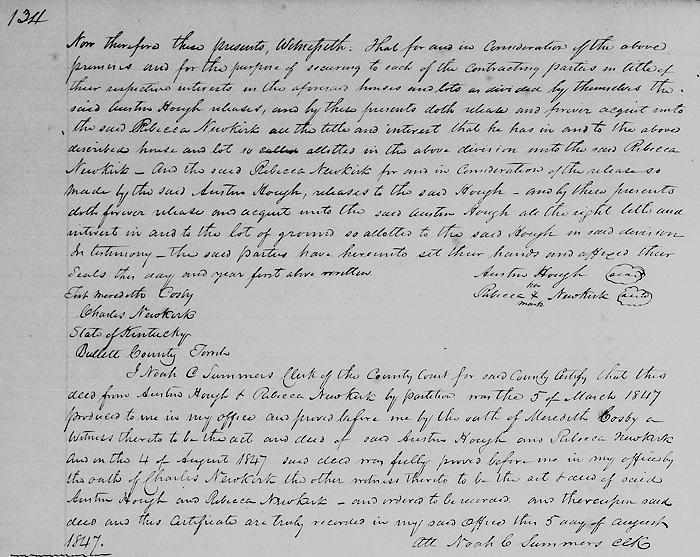 134
Now therefore these presents, Witnesseth. That for and in Consideration of the above
premises and for the purpose of securing to each of the Contracting parties in title of
their respective interests in the aforesaid houses and lots as divided by themselves the
said Austin Hough releases, and by these presents doth release and forever acquit unto
the said Rebecca Newkirk all the title and interest that he has in and to the above
described house and lot so called allotted in the above division unto the said Rebecca
Newkirk – And the said Rebecca Newkirk for and in Consideration of the release so
made by the said Austin Hough, releases to the said Hough – and by these presents
doth forever release and acquit unto the said Austin Hough all the right title and
interest in and to the lot of ground so allotted to the said Hough in said division
In testimony – the said parties have hereunto set their hands and affixed their
Seals this day and year first above written. Austin Hough (seal)
Test Meredith Cosby
her
Rebecca X Newkirk (seal)
mark
Charles Newkirk
State of Kentucky
Bullett County Towit
I Noah C Summers Clerk of the County Court for said County Certify that this
deed from Austin Hough & Rebecca Newkirk by partition was the 5 of March 1847
produced to me in my office and proved before me by the oath of Meredith Cosby a
Witness thereto to be the act and deed of said Austin Hough and Rebecca Newkirk
and on the 4 of August 1847 said deed was fully proved before me in my office by
the oath of Charles Newkirk the other witness thereto to be the act & deed of said
Austin Hough and Rebecca Newkirk – and ordered to be recorded. and thereupon said
deed and this Certificate are truly recorded in my said Office this 5 day of August
1847. Att Noah C Summers Clk